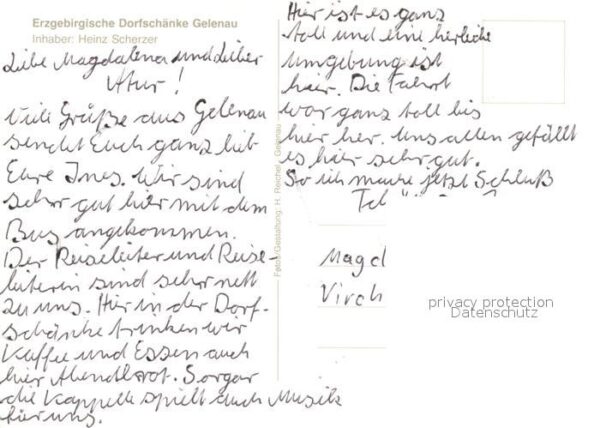 Erzgebirgische Dorfschänke Gelenau
Inhaber: Heinz Scherzer
Liebe Magdalena und Lieber
!
Viele Grüße aus Gelenau
sendet Euch ganz lieb
Eure Ines. Wir sind
sehr gut hier mit dem
Bus angekommen.
Der Reiseleiter und Reise-
leiterin sind sehr nett
zu uns. Hier in der Dorf-
schänke trinken wir
Kaffee und Essen auch
hier Abendbrot. Sorgar
die Kappelle spielt auch Musik
für uns.
Hier ist es ganz
toll und eine herliche
umgebung ist
hier. Die Fahrt
war ganz toll bis
hier her. Uns allen gefällt
es hier sehr gut.
So ich mache jetzt Schluß
Foto/Gestaltung: H. Reichel, Gelenau
Magd
Virch
privacy protection
Datenschutz